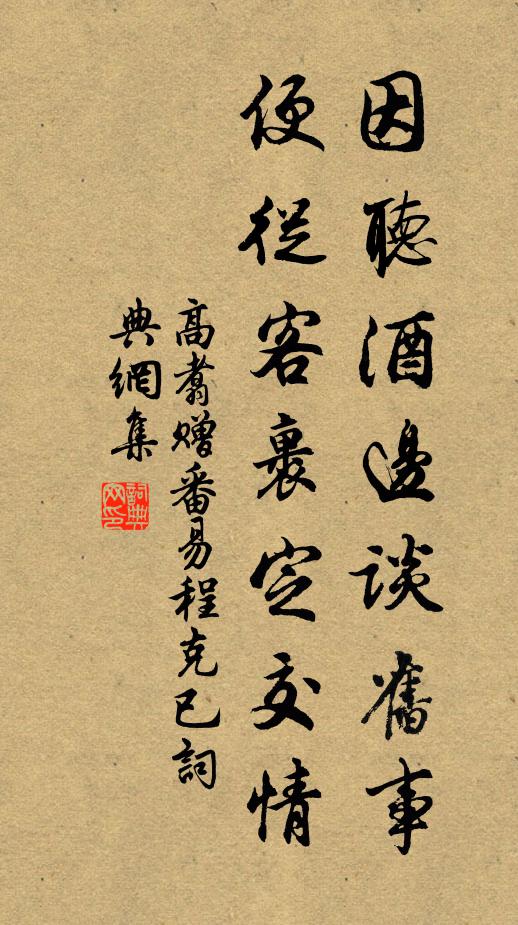 因聽酒邊談舊事
便從客裏定交情
高翥贈番易程克已詞
典網集
詞典
网印